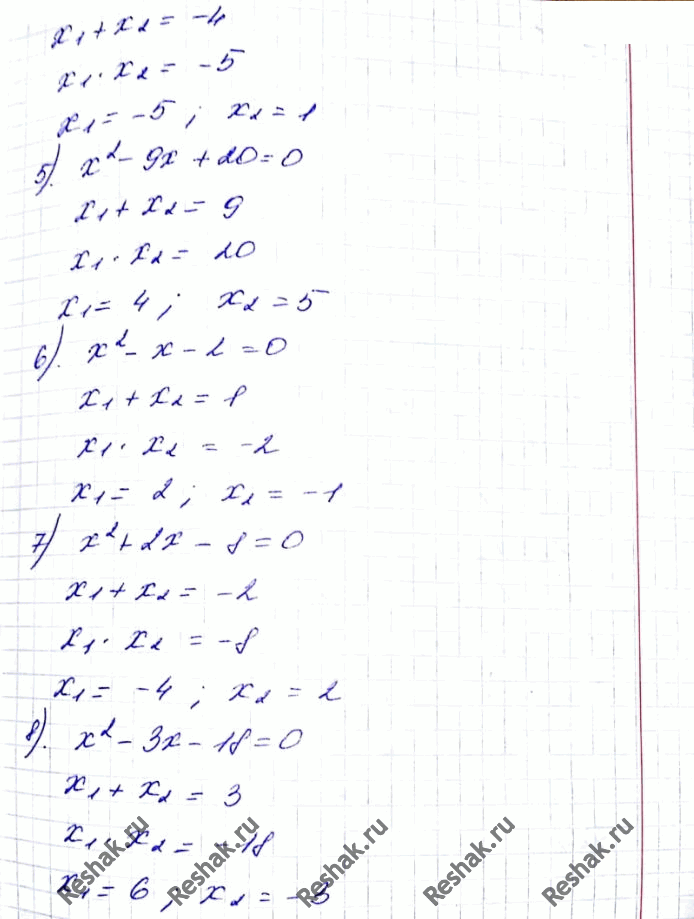 x₁ + x₂ = -4
x₁ · x₂ = -5
x₁ = -5 ; x₂ = 1
5). x² - 9x + 20 = 0
x₁ + x₂ = 9
x₁ · x₂ = 20
x₁ = 4 ; x₂ = 5
6). x² - x - 2 = 0
x₁ + x₂ = 1
x₁ · x₂ = -2
x₁ = 2 ; x₂ = -1
7) x² + 2x - 8 = 0
x₁ + x₂ = -2
x₁ · x₂ = -8
x₁ = -4 ; x₂ = 2
8). x² - 3x - 18 = 0
x₁ + x₂ = 3
x₁ · x₂ = -18
x₁ = 6 ; x₂ = -3
Reshak.ru
Reshak.ru
Reshak.ru
Reshak.ru
Reshak.ru